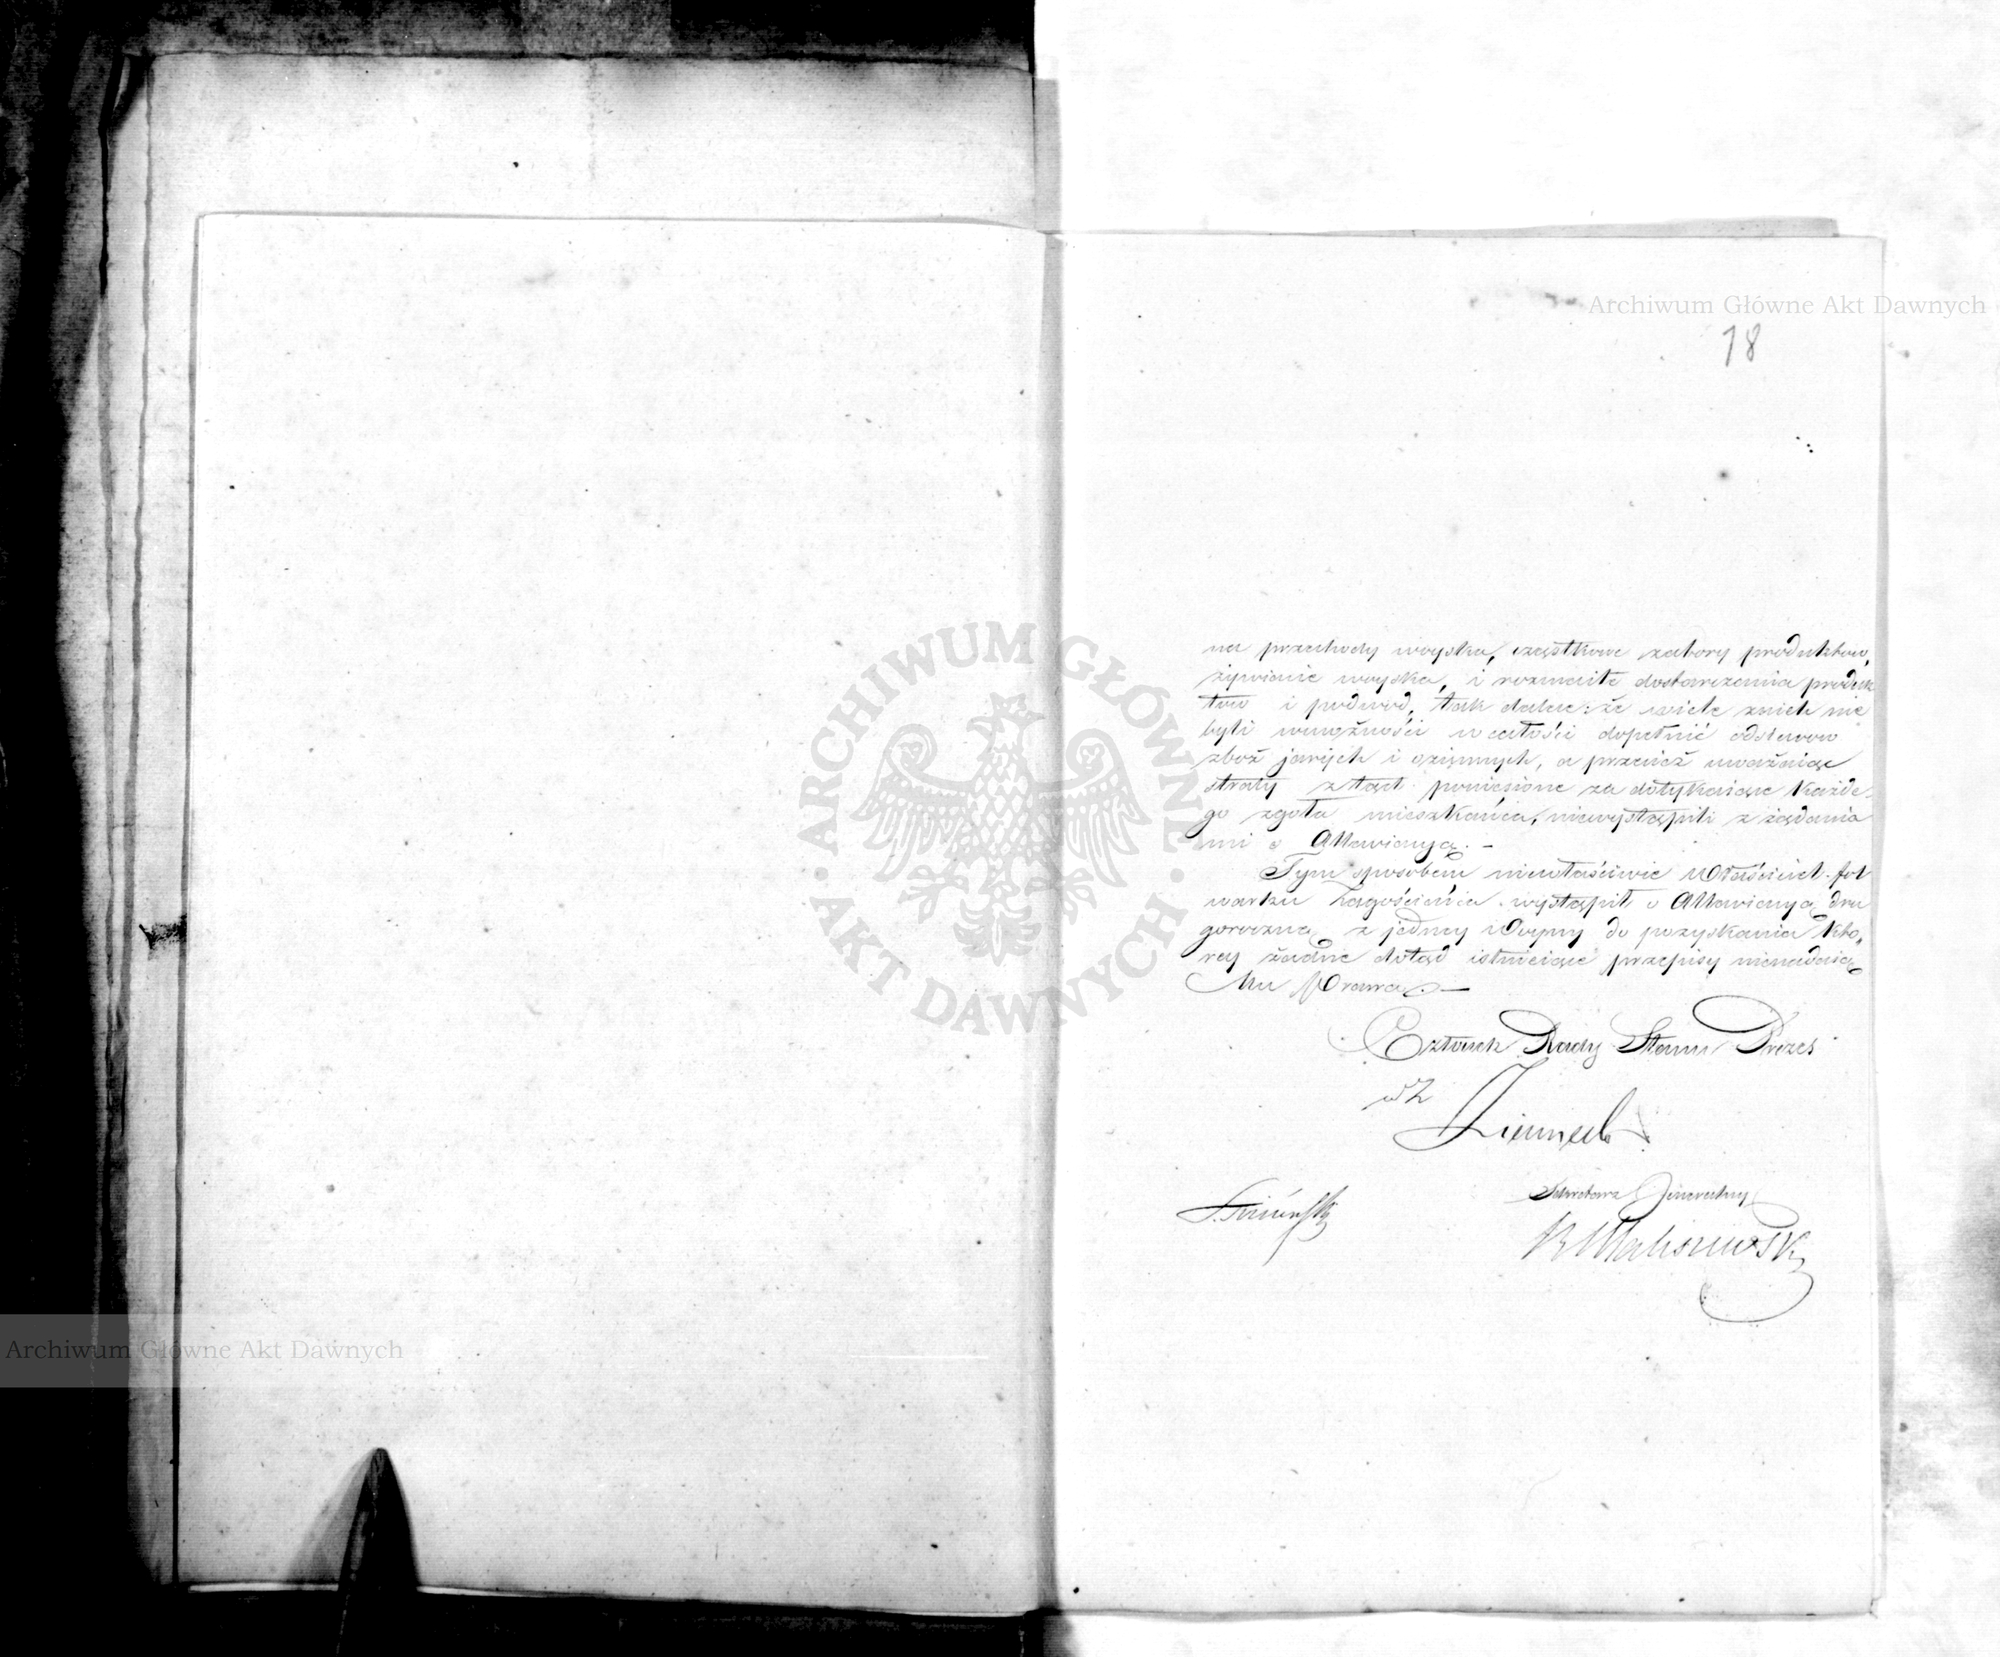 Archiwum Główne Akt Dawnych
18
na przechody woyska, cząstkowe zabory produktow,
żywienie woyska, i rozmaite dostarczania produk
tow i podwod, tak dalece: że wiele znich nie
byli wmożności wcałości dopełnić odstawow
zboż jarych i ozimnych, a przecież uważaiąc
straty ztąd poniesione za dotykaiące każde-
go zgoła mieszkańca, niewystąpili z żądania
mi o Allewiacyą. -
Tym sposobem niewłaściwie Właściciel fol
warku Zagościńca wystąpił o Allewiacyą dru
goroczną z jedney Woyny do pozyskania kto,
rey żadne dotąd istnieiące przepisy nienadaią
Mu Prawa. -
Członek Rady Stanu Prezes
wz
Sekretarz Jeneralny
ARCHIWUM GŁÓWNE
AKT DAWNYCH
Archiwum Główne Akt Dawnych